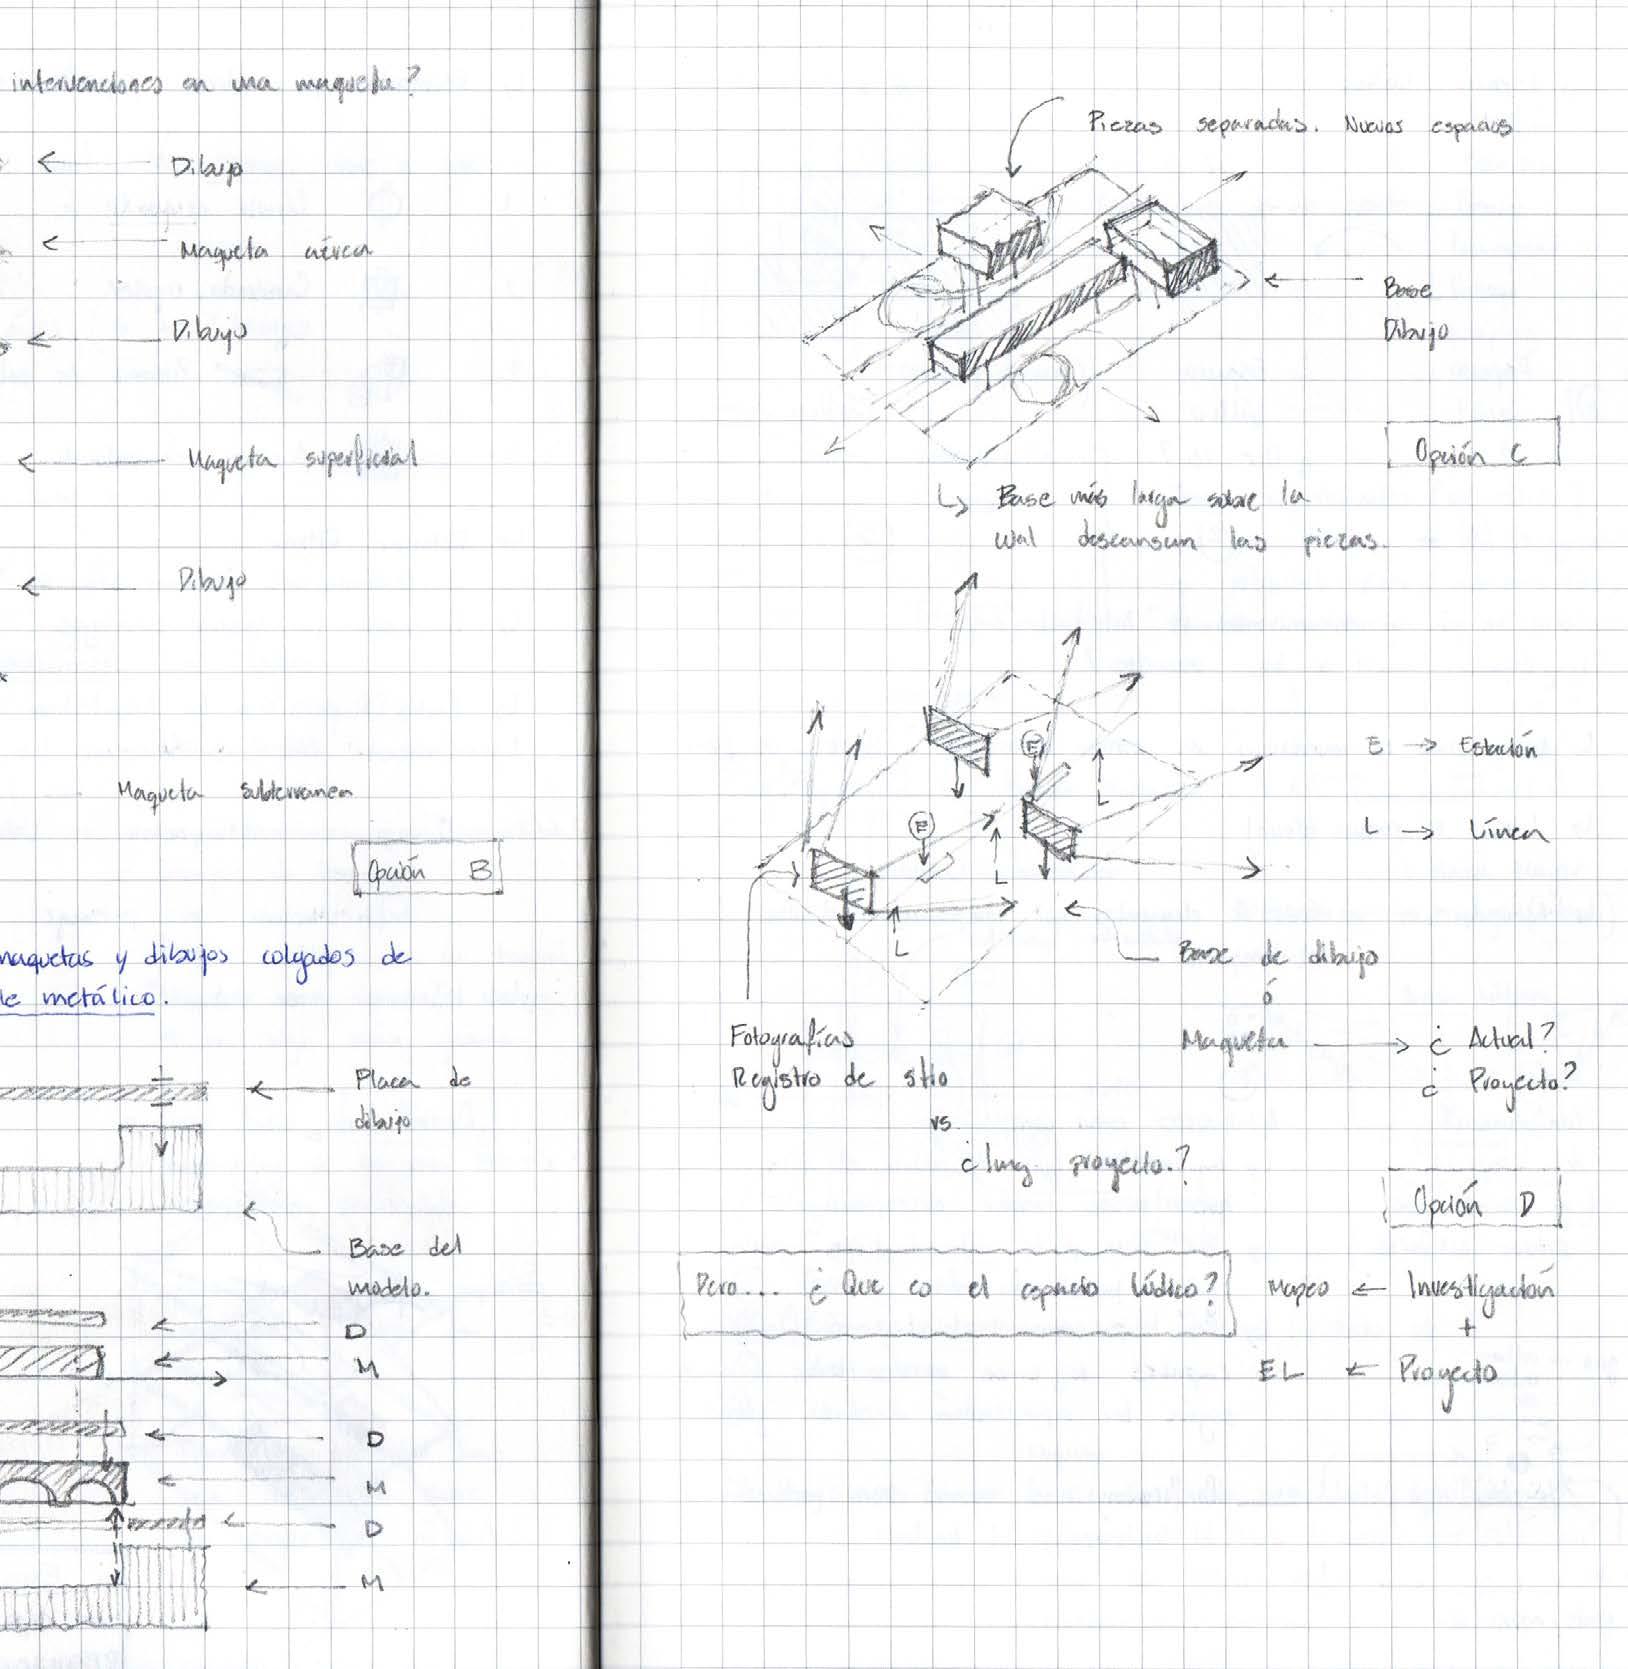 intervenciones en una maqueta?
Dibujo
Maqueta aérea
Dibujo
Maqueta superficial
Dibujo
Maqueta subterranea
Opción B
maquetas y dibujos colgados de
metálico.
Placa de
dibujo
Base del
modelo.
D
M
D
M
D
M
Piezas separadas. Nuevos espacios
Base
Dibujo
Opción C
Base más larga sobre la
cual descansan las piezas.
E
E
L
L
L
E → Estación
L → Línea
Base de dibujo
ó
Maqueta → ¿ Actual?
¿ Proyecto?
Fotografías
Registro de sitio
vs
¿Img proyecto.?
Opción D
Pero... ¿ Que es el espacio lúdico?
Mapeo ← Investigación
+
EL ← Proyecto